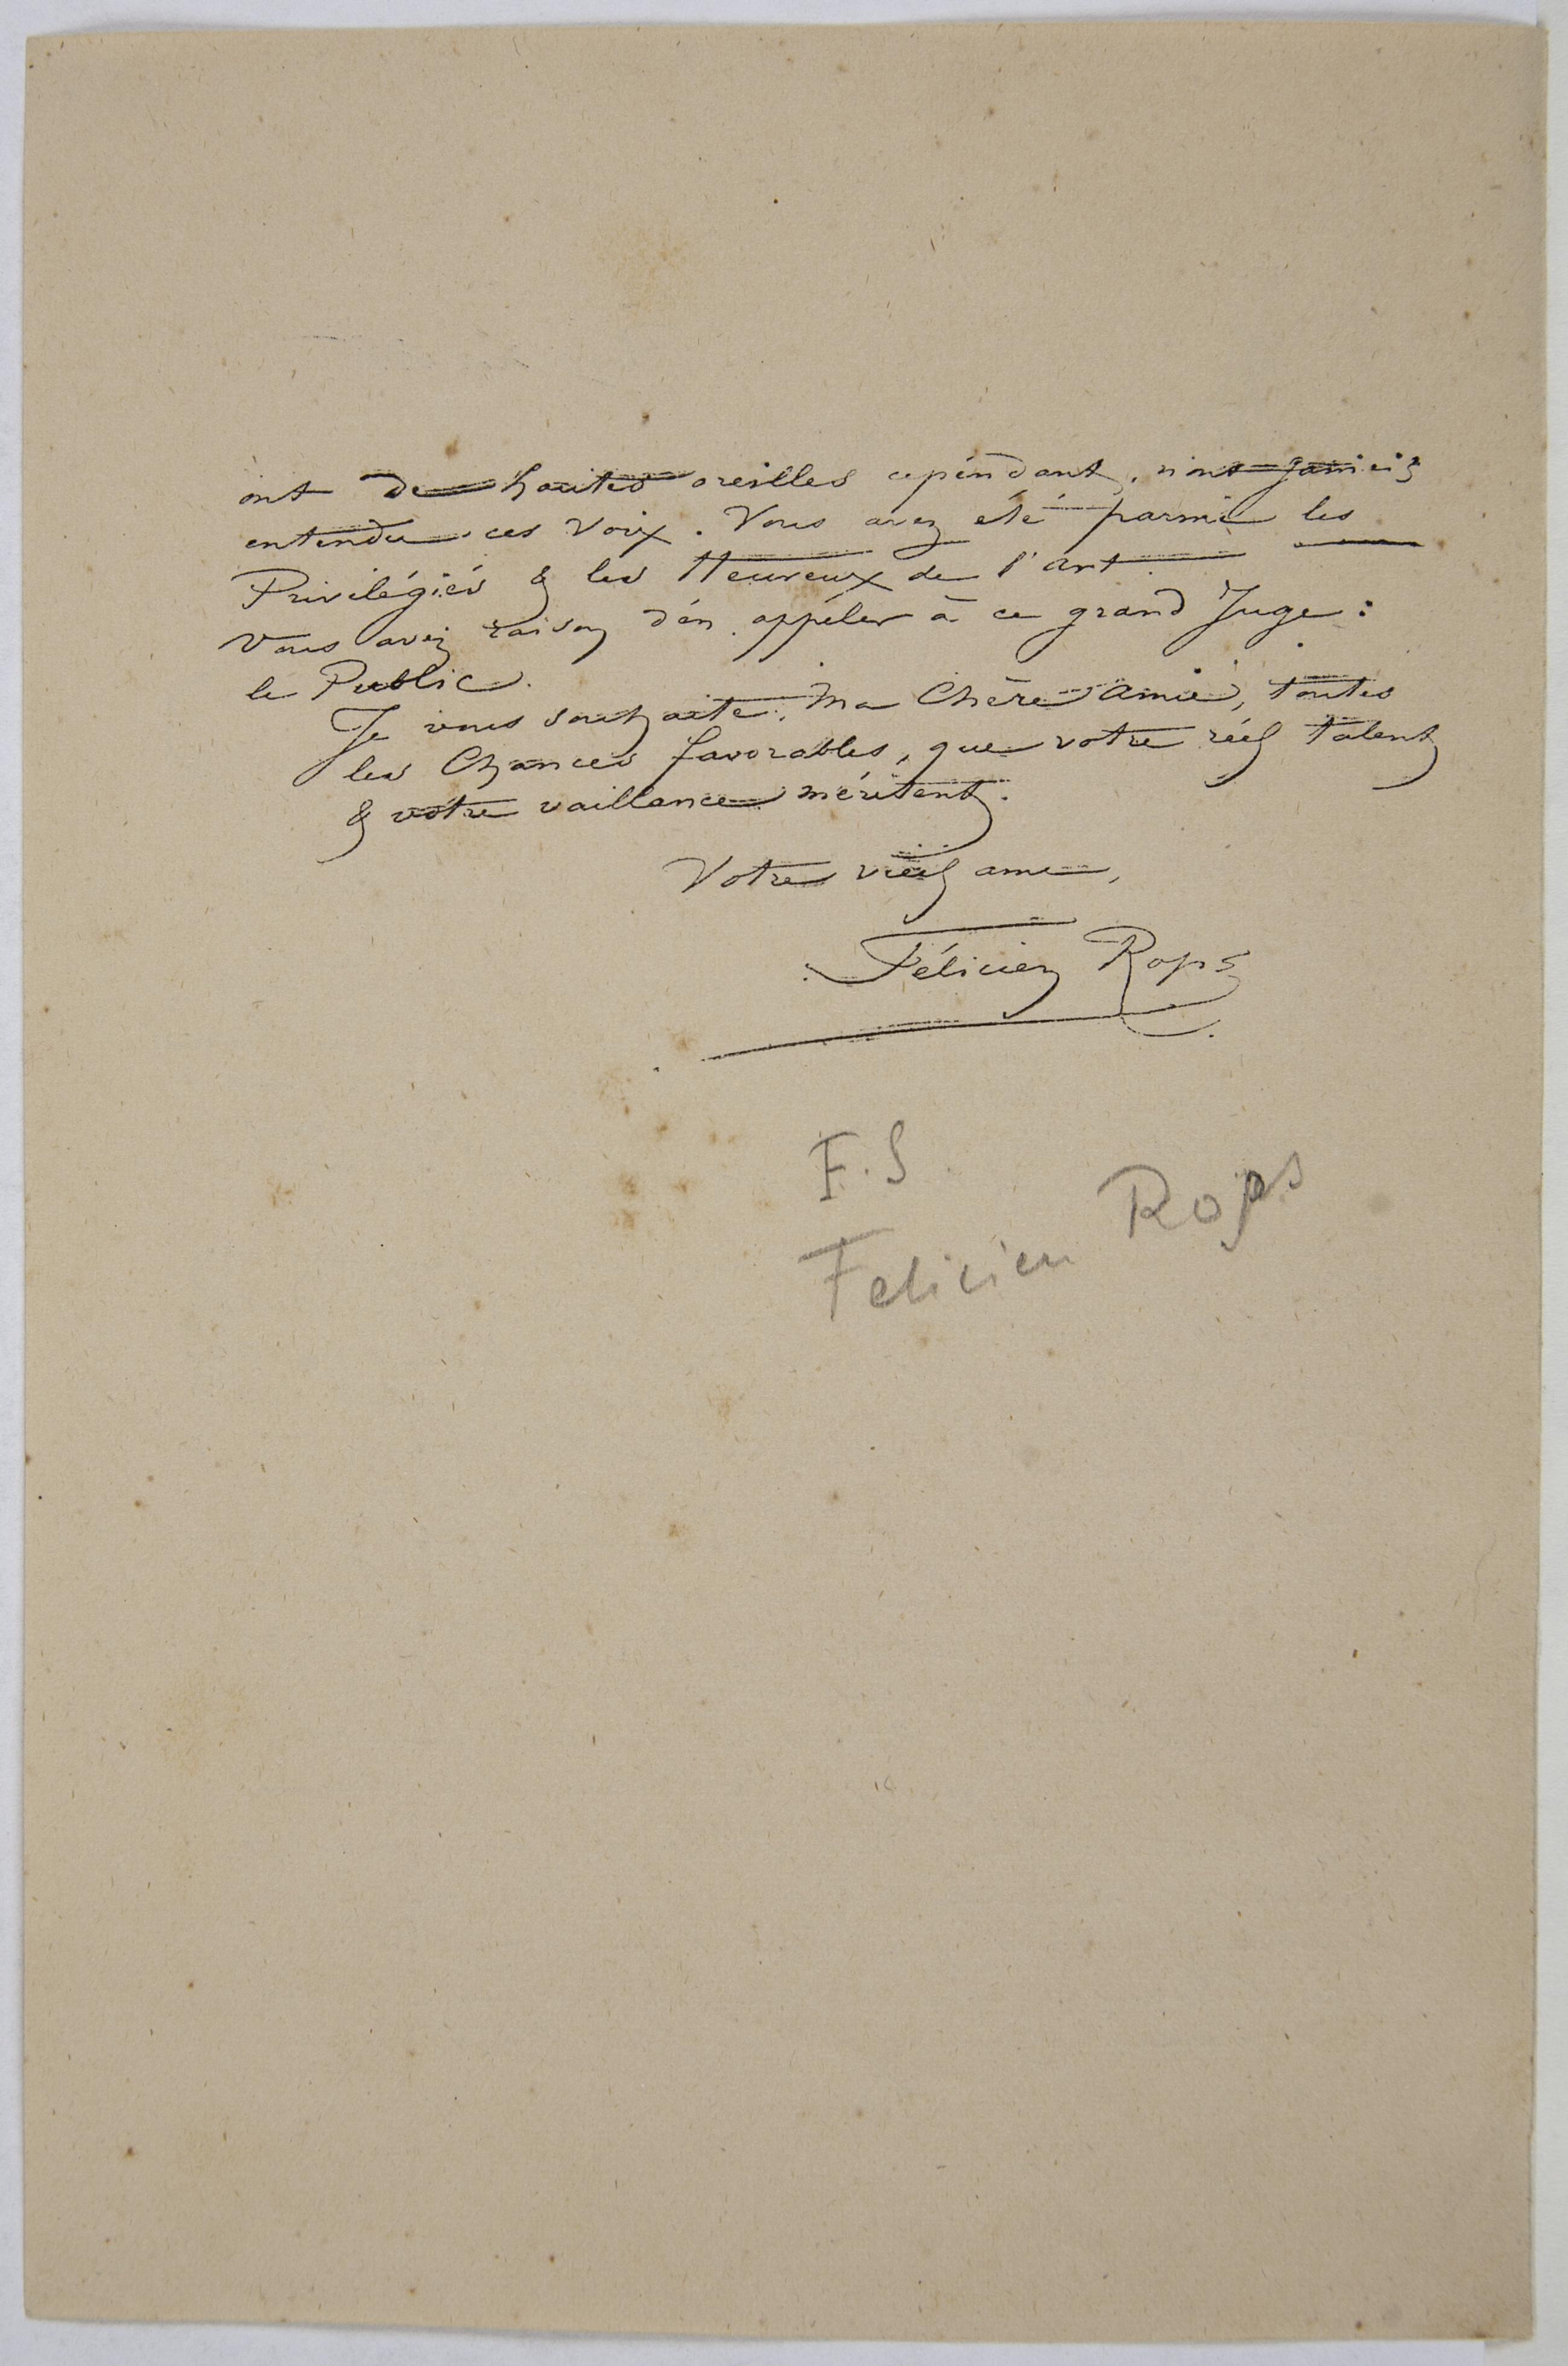 ont de hautes oreilles cependant, n'ont jamais
entendu ces voix. Vous avez été parmi les
Privilégiés & les Heureux de l'art.
Vous avez raison d'en appeler à ce grand Juge:
le Public.
Je vous souhaite, Ma Chère Amie, toutes
les Chances favorables, que votre réel talent
& votre vaillance méritent.
Votre vieil ami,
Félicien Rops
F.S
Felicien Rops